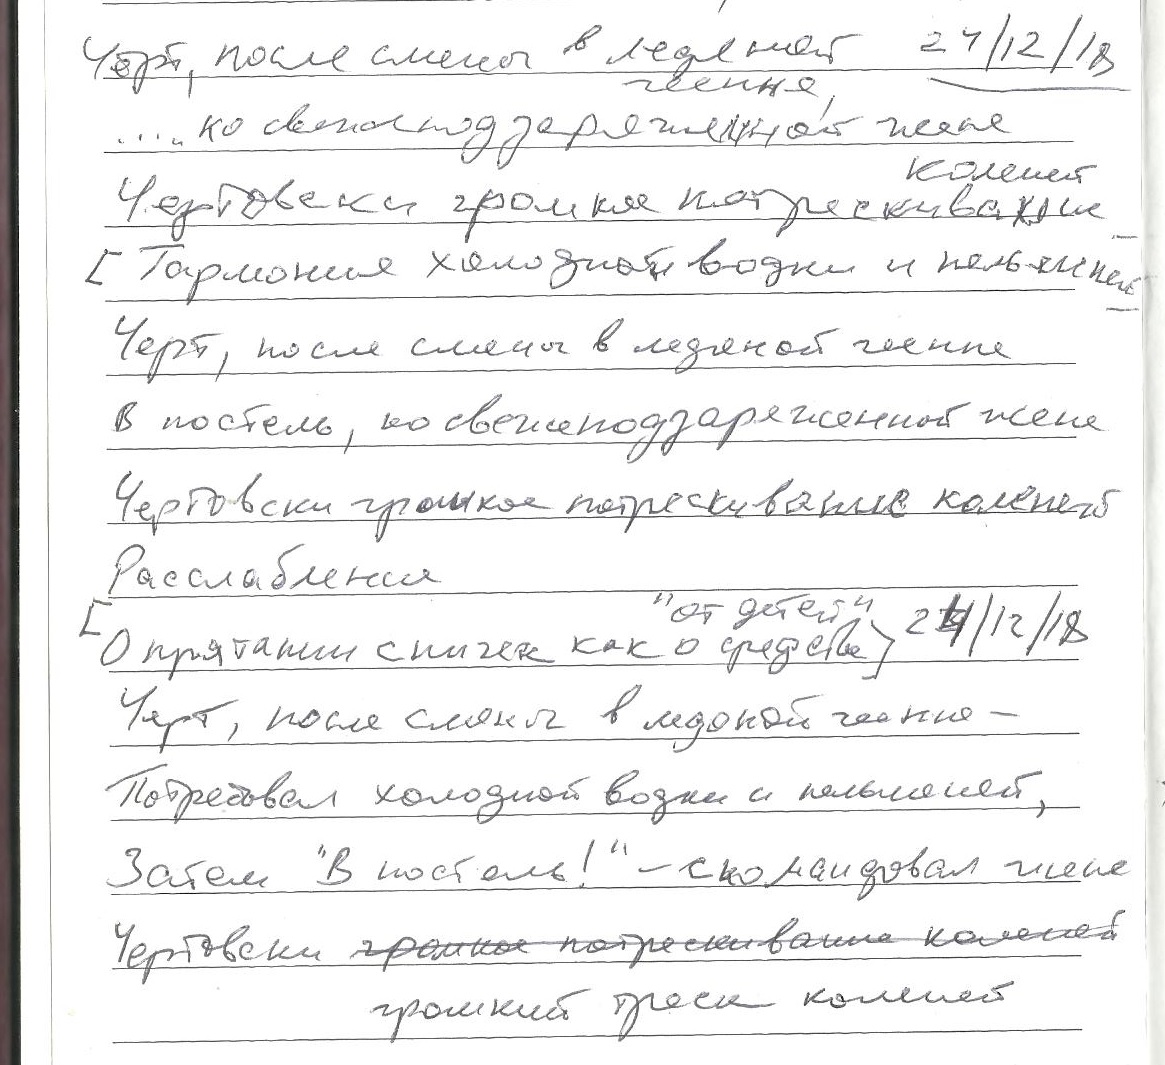 Черт, после смены в ледяной 24/12/18
геенне,
.... ко свежеподзаряженной жене
коленей
Чертовски громкое потрескивание
[Гармония холодной водки и пельменей
Черт, после смены в ледяной геенне
В постель, ко свежеподзаряженной жене
Чертовски громкое потрескивание коленей
Расслабления
"от детей"
[О прятании спичек как о средстве] 24/12/18
Черт, после смены в ледяной геенне –
Потребовал холодной водки и пельменей,
Затем "В постель!" – скомандовал жене
Чертовски громкое потрескивание коленей
громкий треск коленей